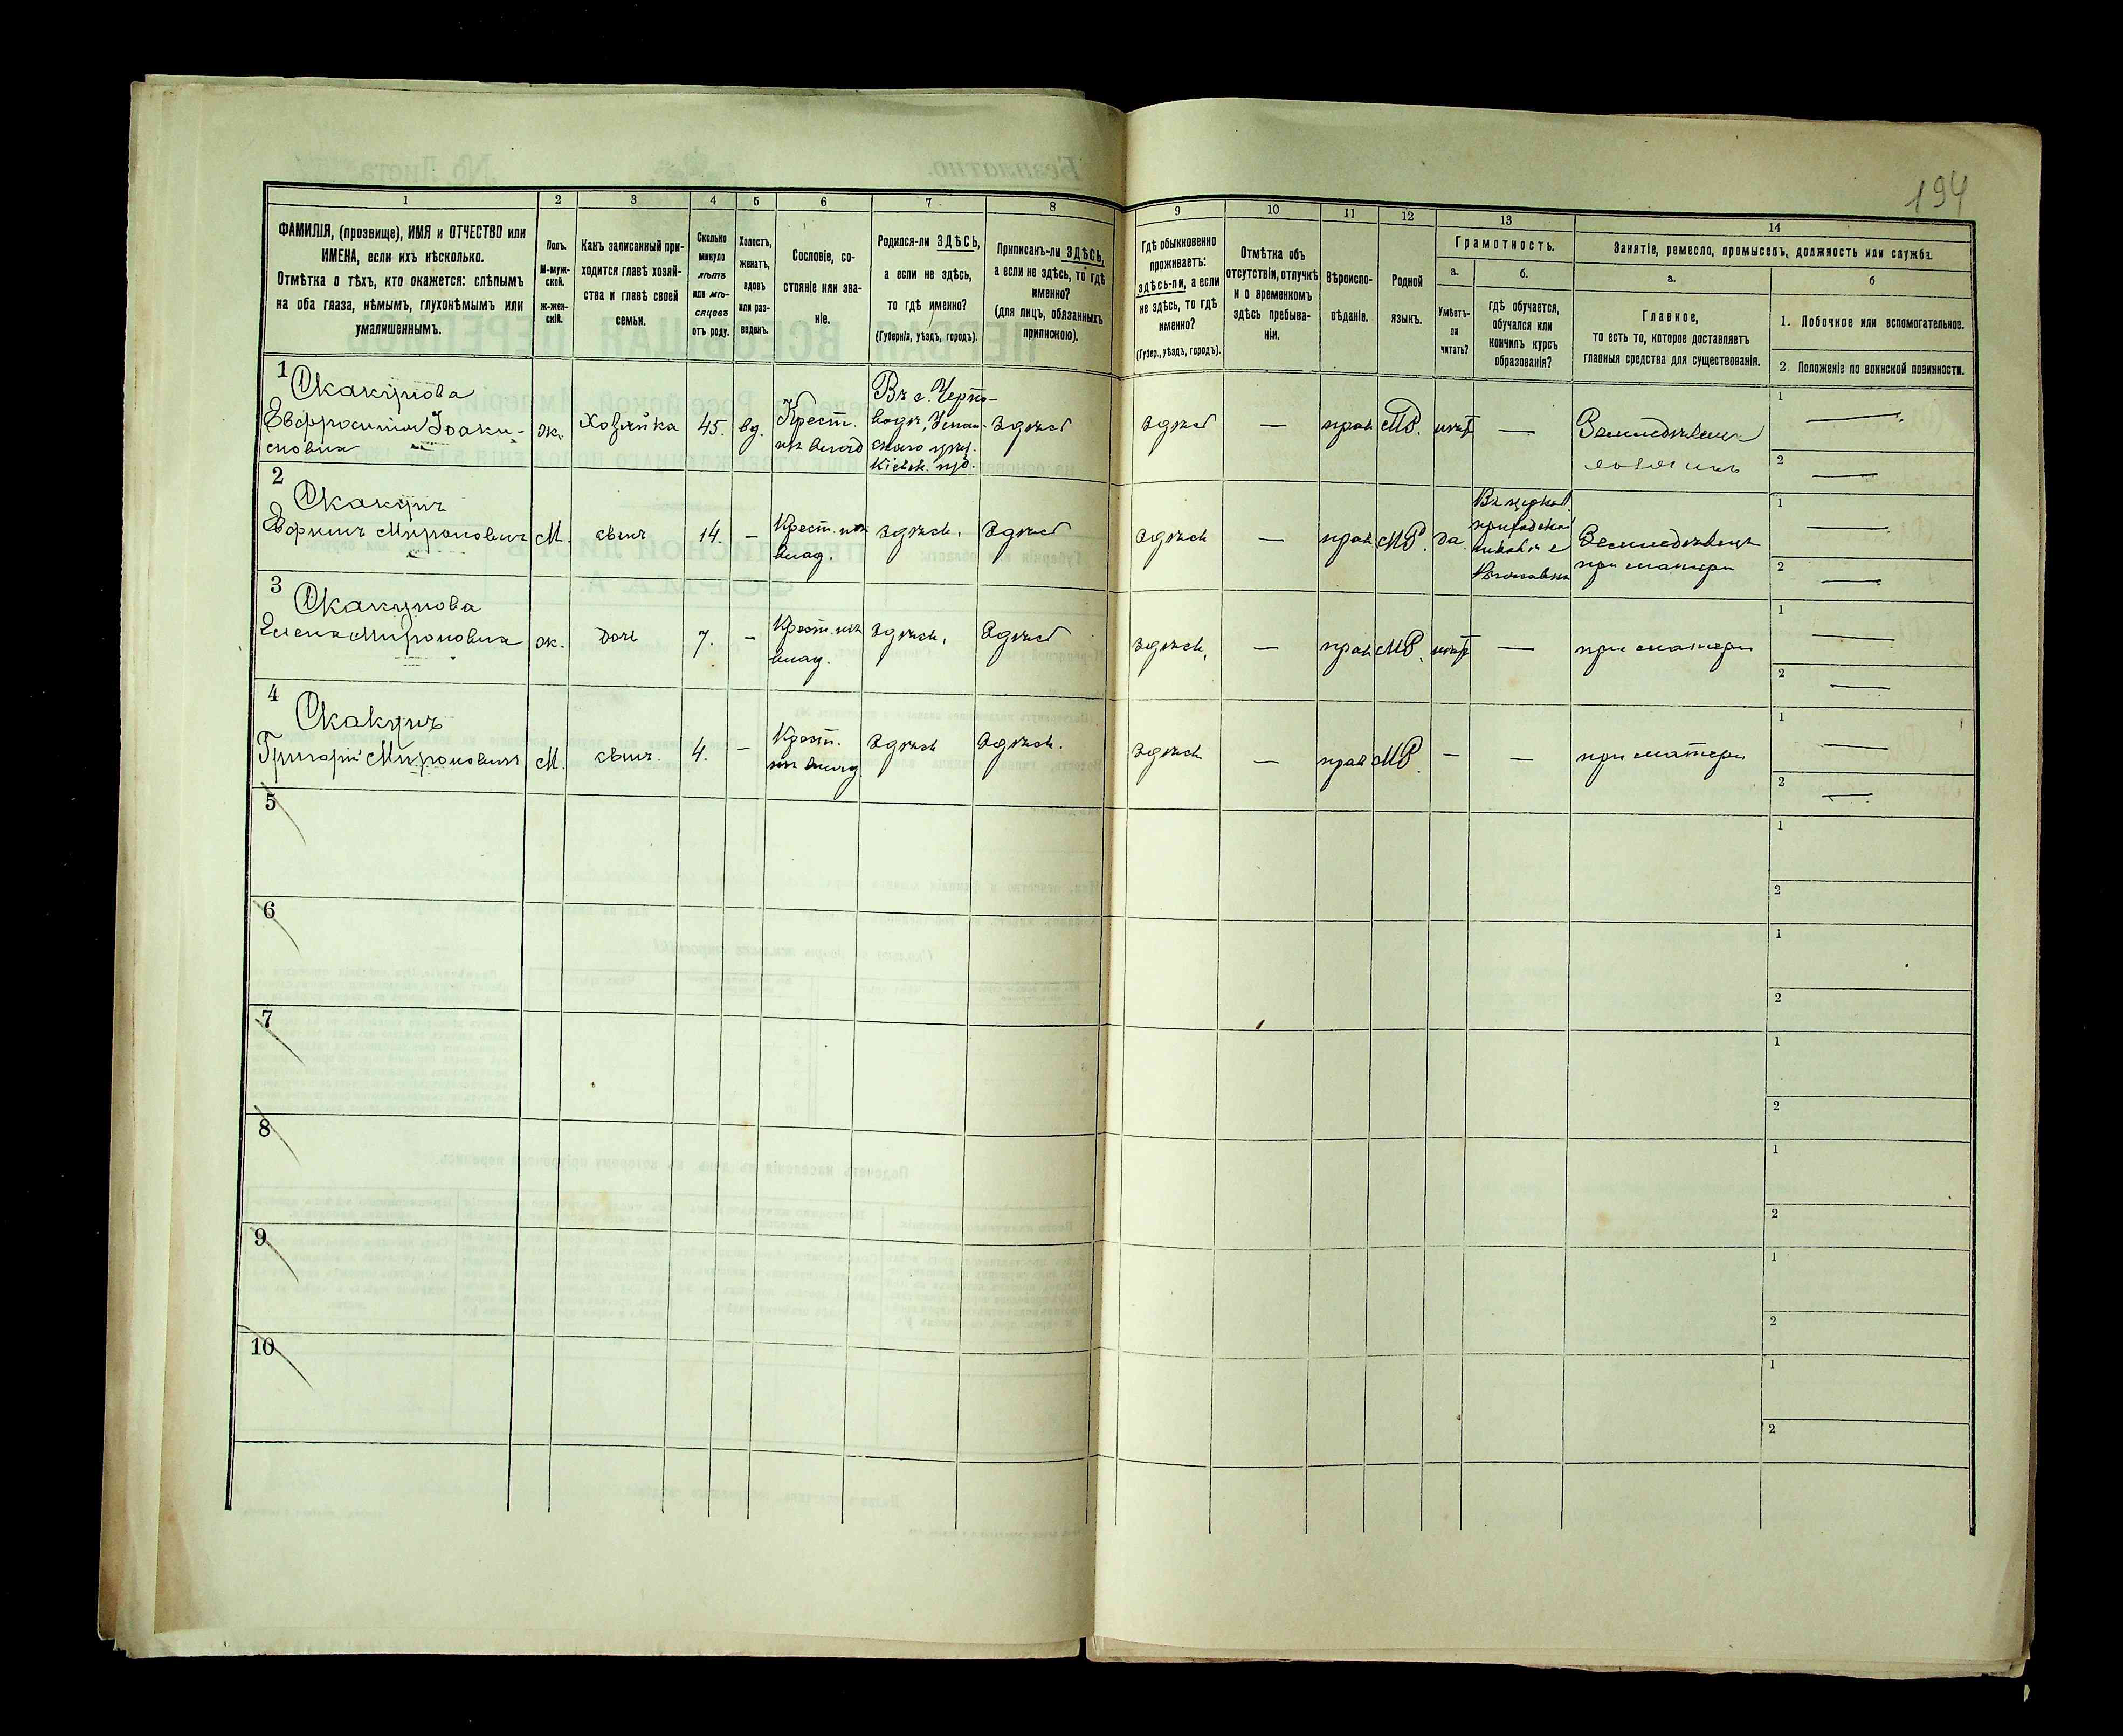 194
1
2
3
4
5
6
7
8
9
10
11
12
13
14
ФАМИЛІЯ, (прозвище), ИМЯ и ОТЧЕСТВО или
ИМЕНА, если ихъ нѣсколько.
Отмѣтка о тѣхъ, кто окажется: слѣпымъ
на оба глаза, нѣмымъ, глухонѣмымъ или
умалишеннымъ.
Полъ.
М-муж-
ской.
ж-жен-
скій.
Какъ записанный при-
ходится главѣ хозяй-
ства и главѣ своей
семьи.
Сколько
минуло
лѣтъ
или мѣ-
сяцевъ
отъ роду.
Холостъ,
женатъ,
вдовъ
или раз-
веденъ.
Сословіе, со-
стояніе или зва-
ніе.
Родился-ли ЗДѢСЬ,
а если не здѣсь,
то гдѣ именно?
(Губернія, уѣздъ, городъ).
Приписанъ-ли ЗДѢСЬ,
а если не здѣсь, то гдѣ
именно?
(для лицъ, обязанныхъ
припискою).
Гдѣ обыкновенно
проживаетъ:
здѣсь-ли, а если
не здѣсь, то гдѣ
именно?
(Губер., уѣздъ, городъ).
Отмѣтка объ
отсутствіи, отлучкѣ
и о временномъ
здѣсь пребыва-
ніи.
Вѣроиспо-
вѣданіе.
Родной
языкъ.
Грамотность.
а.
б.
Умѣетъ-
ли
читать?
Гдѣ обучается,
обучался или
кончилъ курсъ
образованія?
Занятіе, ремесло, промыселъ, должность или служба.
а.
б
Главное,
то есть то, которое доставляетъ
главныя средства для существованія.
1. Побочное или вспомогательное.
2. Положеніе по воинской повинности.
1
Скакунова
Евфросинія Іоаки-
мовна
ж.
Хозяйка
45.
вд.
Крест.
изъ влад
Въ с. Черно-
водъ, Уман-
скаго уѣзд.
Кіевск. губ.
Здѣсь
Здѣсь
—
прав
МР.
нѣтъ
—
Земледѣлецъ
1 —
2 —
2
Скакунъ
Ефимъ Мироновичъ
М.
сынъ
14.
—
Крест. изъ
влад.
Здѣсь.
Здѣсь
Здѣсь
—
прав
МР.
да.
Въ церков.
приходской
школѣ
Земледѣлецъ
при матери
1 —
2 —
3
Скакунова
Елена Мироновна
ж.
дочь
7.
—
Крест. изъ
влад.
Здѣсь,
Здѣсь
Здѣсь,
—
прав
МР.
нѣтъ
—
при матери
1 —
2 —
4
Скакунъ
Григорій Мироновичъ
М.
сынъ.
4.
—
Крест.
изъ влад
Здѣсь
Здѣсь.
Здѣсь
—
прав
МР.
—
—
при матери
1 —
2 —
5
1
2
6
1
2
7
1
2
8
1
2
9
1
2
10
1
2